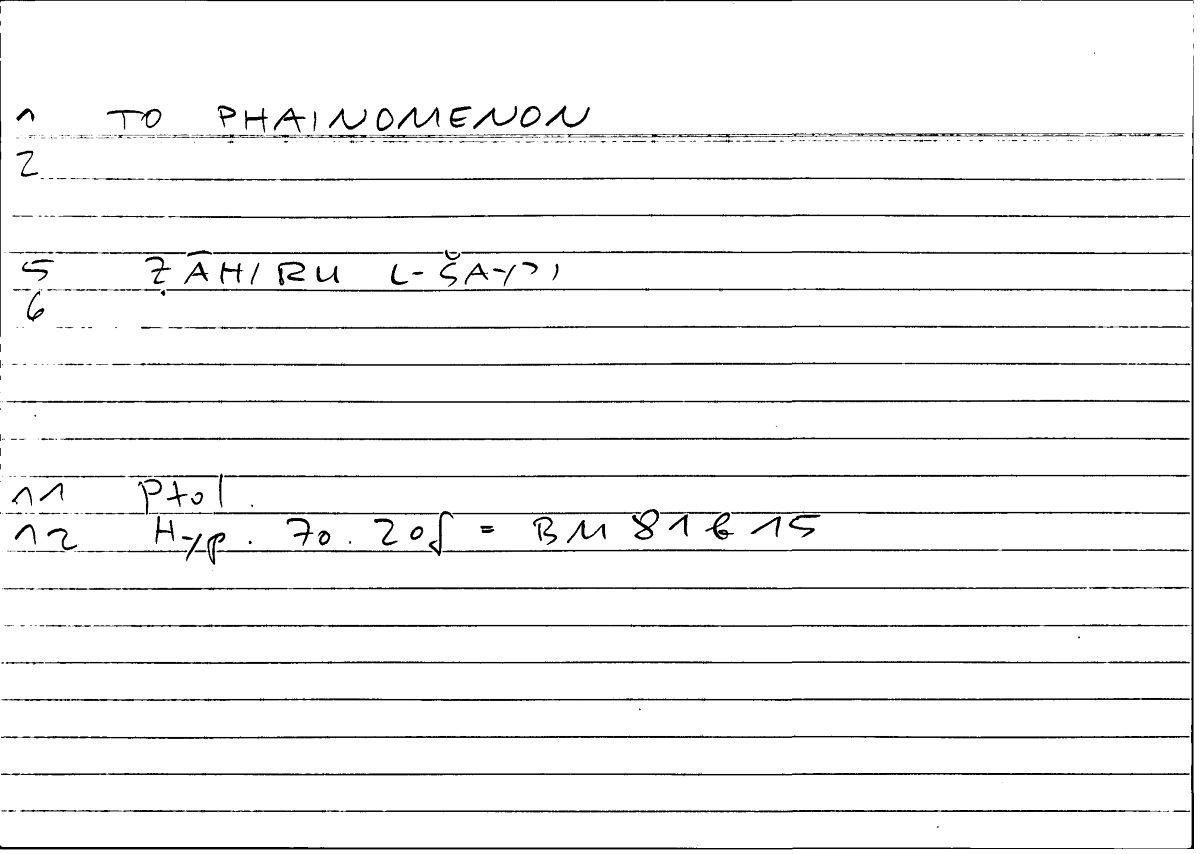 1 TO PHAINOMENON
2
5 ẒÂHIRU L-ŠAYʾI
6
11 Ptol.
12 Hyp. 70. 20f = BM 81b 15